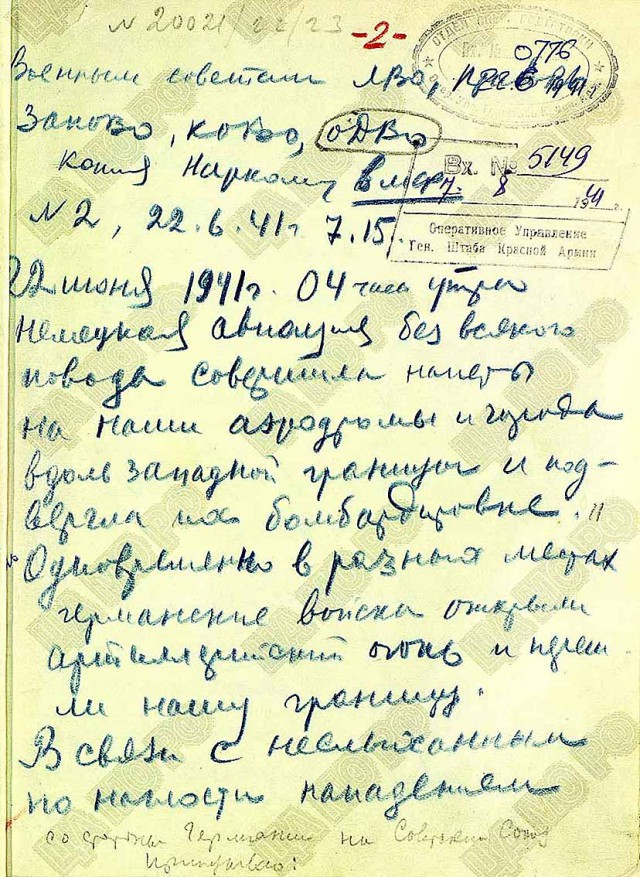 N 20021/22/23
-2-
Военным советам ЛВО, ПрибВО
ЗапОВО, КОВО, ОДВО
Копия Наркому ВМФ
Вх. № 5149
7. 8 1941 г.
Оперативное Управление
Ген. Штаба Красной Армии
N 2, 22.6.41г 7.15.
22 июня 1941г. 04 часа утра
немецкая авиация без всякого
повода совершила налеты
на наши аэродромы и города
вдоль западной границы и под-
вергла их бомбардировке.
Одновременно в разных местах
германские войска открыли
артиллерийский огонь и переш
ли нашу границу.
В связи с неслыханным
по наглости нападением
со стороны Германии на Советский Союз
Приказываю: